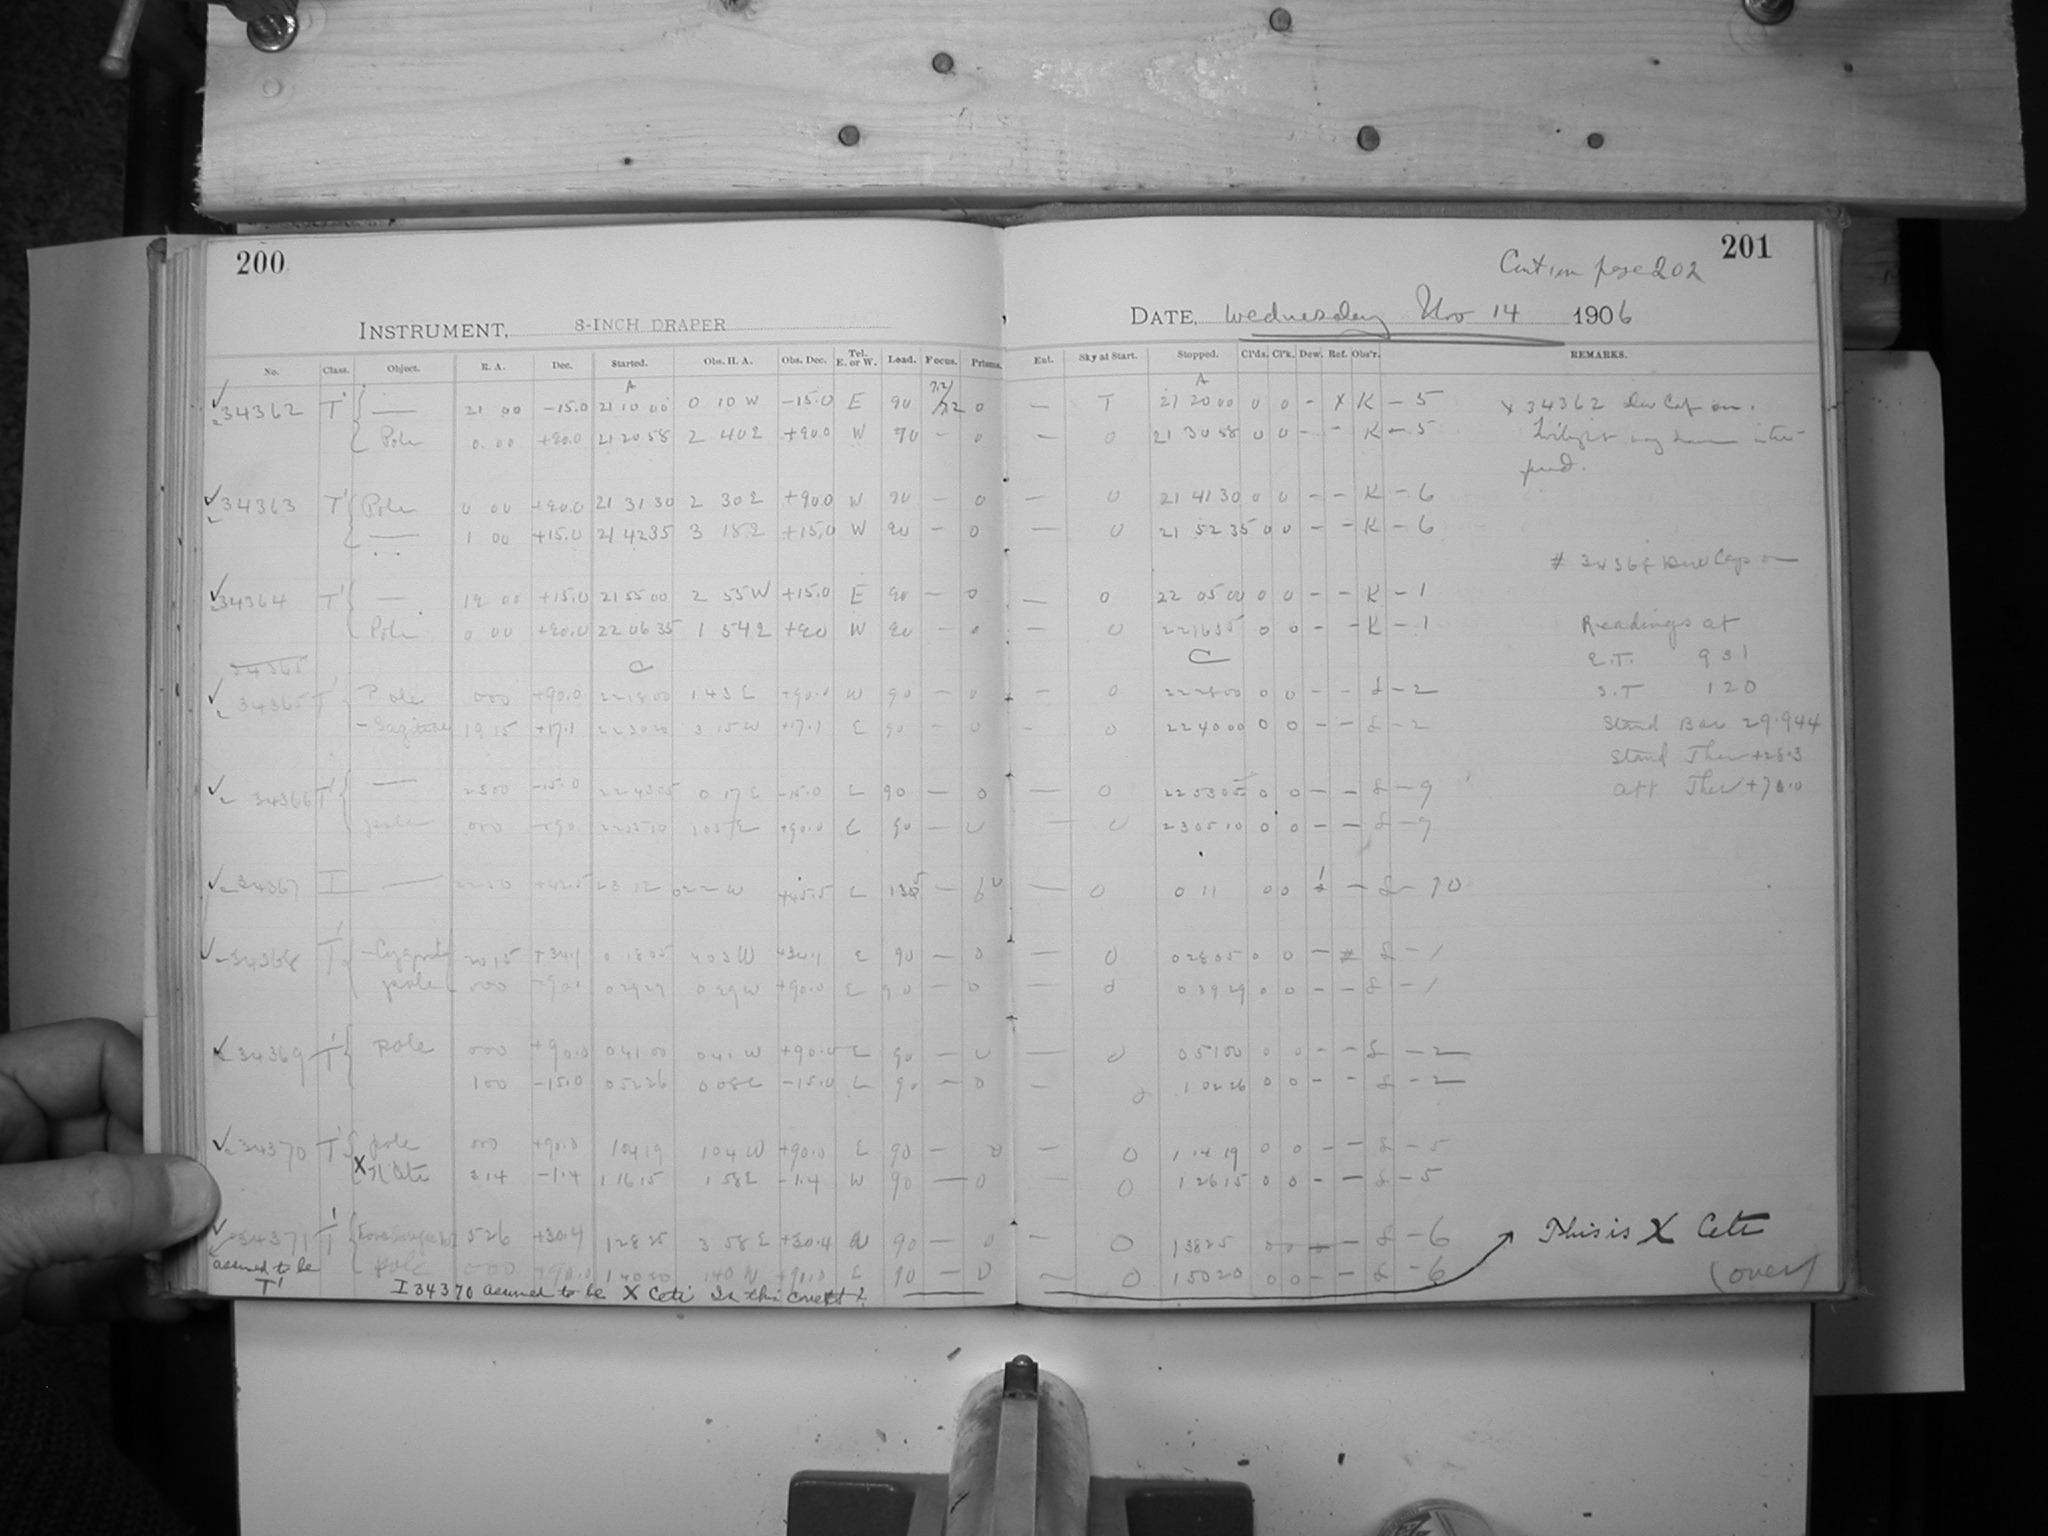 200
INSTRUMENT, 8-INCH DRAPER
No. Class. Object. R. A. Dec. Started. Obs. H. A. Obs. Dec. Tel. E. or W. Lead. Focus. Prisms.
A
34362 T' — 21 00 -15.0 21 10 00 0 10 W -15.0 E 90 0
Pole 0 00 +90.0 21 20 58 2 40 E +90.0 W 90 - 0
34363 T' Pole 0 00 +90.0 21 31 30 2 30 E +90.0 W 90 - 0
— 1 00 +15.0 21 42 35 3 18 E +15.0 W 90 - 0
34364 T' — 19 00 +15.0 21 55 00 2 55 W +15.0 E 90 - 0
Pole 0 00 +90.0 22 06 35 1 54 E +90 W 90 - 0
34365
C
34365 T' Pole 0 00 +90.0 22 18 00 1 43 E +90.0 W 90 - 0
- Sagittae 19 15 +17.1 22 30 20 3 15 W +17.1 E 90 - 0
34366 T' — 23 00 -15.0 22 43 05 0 17 E -15.0 E 90 - 0
pole 0 00 +90 22 55 10 +90.0 E 90 - 0
34367 I — 23 12 0 22 W +45.5 E -
34368 T' - Cygni 20 15 +34.1 0 18 05 4 03 W +34.1 E 90 - 0
pole 0 00 +90.0 0 29 29 0 29 W +90.0 E 90 - 0
34369 T' pole 0 00 +90.0 0 41 00 0 41 W +90.0 E 90 - 0
1 00 -15.0 0 52 26 0 08 E -15.0 E 90 - 0
34370 T' pole 0 00 +90.0 1 04 19 1 04 W +90.0 E 90 - 0
X 3 14 -1.4 1 16 15 1 58 E -1.4 W 90 — 0
34371 T' 5 26 +30.4 1 28 25 3 58 E +30.4 W 90 - 0
pole 0 00 +90.0 1 40 20 1 40 W +90.0 E 90 - 0
assumed to be
T'
I 34370 assumed to be X Ceti Is this correct?
201
Cont on page 202
DATE, Wednesday Nov 14 1906
Ext. Sky at Start. Stopped. Cl'ds. Cl'k. Dew. Ref. Obs'r. REMARKS.
A
— T 21 20 00 0 0 - x K - 5
— 0 21 30 58 0 0 - - K - 5
— 0 21 41 30 0 0 - - K - 6
— 0 21 52 35 0 0 - - K - 6
— 0 22 05 00 0 0 - - K - 1
— 0 22 16 35 0 0 - - K - 1
C
- 0 22 28 00 0 0 - - L - 2
- 0 22 40 00 0 0 - - L - 2
— 0 22 53 05 0 0 - - L - 9
— 0 23 05 10 0 0 - - L - 9
— 0 0 11 0 0 - L - 10
— 0 0 28 05 0 0 - # L - 1
— 0 0 39 29 0 0 - - L - 1
— 0 0 51 00 0 0 - - L - 2
- 0 1 02 26 0 0 - - L - 2
- 0 1 14 19 0 0 - - L - 5
— 0 1 26 15 0 0 - - L - 5
- 0 1 38 25 0 0 - - L - 6
- 0 1 50 20 0 0 - - L - 6
x 34362 Dew Cap on.
Twilight may have inter-
fered.
# 34368 Dew Cap on
Readings at
E.T. 931
S.T 120
Stand Bar 29.944
Stand Ther +28.3
Att Ther +70.0
This is X Ceti
(over)